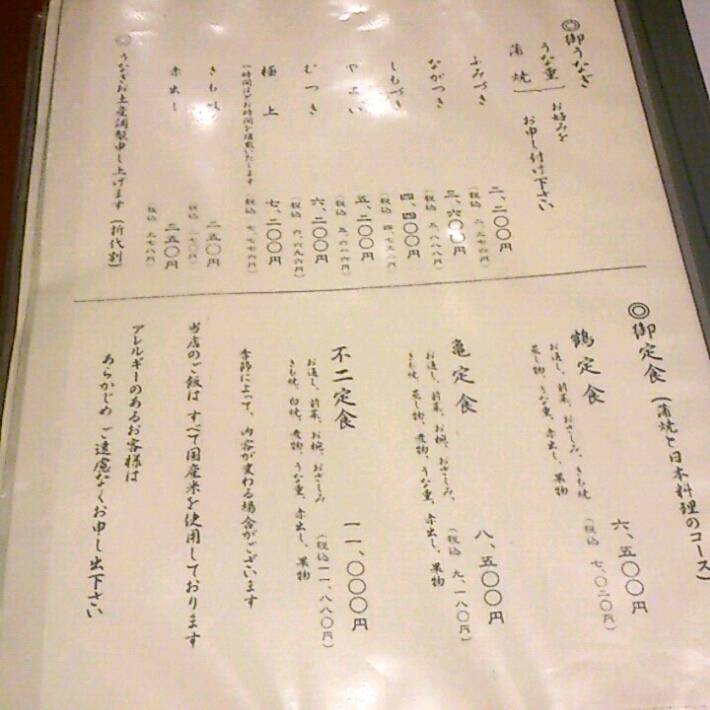 ◎御うなぎ
うな重
蒲焼
お好みを
お申し付け下さい
ふみづき
二、二〇〇円
(税込 二、三七六円)
ながつき
三、六〇〇円
(税込 三、八八八円)
しもつき
四、四〇〇円
(税込 四、七五二円)
やよい
五、二〇〇円
(税込 五、六一六円)
むつき
六、二〇〇円
(税込 六、六九六円)
極上
七、二〇〇円
(税込 七、七七六円)
一時間ほどお時間を頂戴いたします
きも吸
二五〇円
(税込 二七〇円)
赤出し
三五〇円
(税込 三七八円)
◎うなぎお土産調製申し上げます(折代別)
◎御定食(蒲焼と日本料理のコース)
鶴定食
六、五〇〇円
(税込 七、〇二〇円)
お通し、前菜、おさしみ、きも焼
蒸し物、うな重、赤出し、果物
亀定食
八、五〇〇円
(税込 九、一八〇円)
お通し、前菜、お椀、おさしみ、
きも焼、蒸し物、煮物、うな重、赤出し、果物
不二定食
一一、〇〇〇円
(税込 一一、八八〇円)
お通し、前菜、お椀、おさしみ
きも焼、白焼、煮物、うな重、赤出し、果物
季節によって、内容が変わる場合がございます
当店のご飯は すべて国産米を使用しております
アレルギーのあるお客様は
あらかじめ ご遠慮なくお申し出下さい